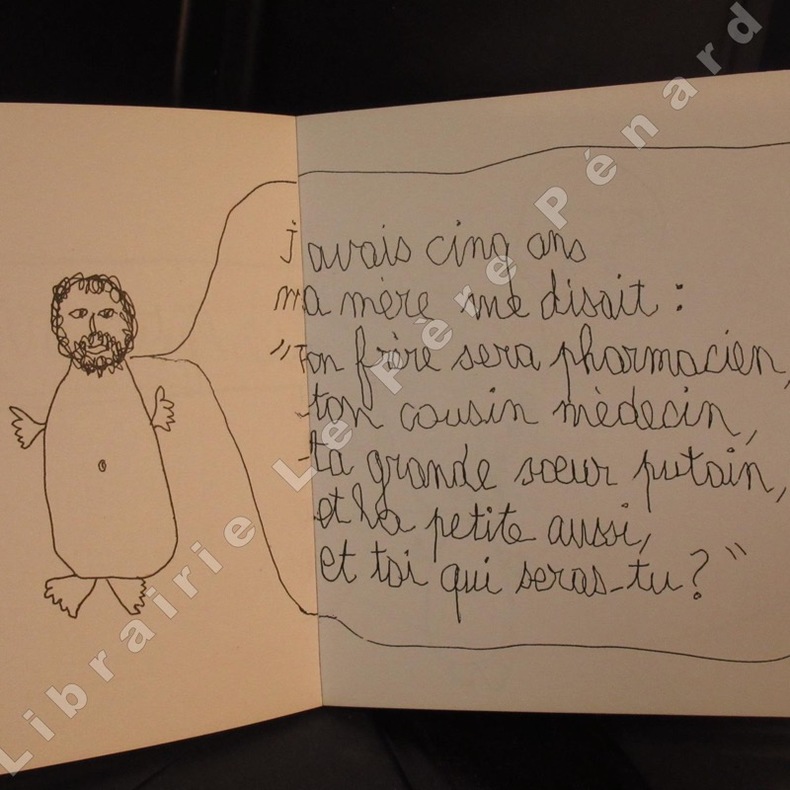 j'avais cinq ans
ma mère me disait :
"Ton frère sera pharmacien,
ton cousin médecin,
ta grande sœur putain,
et la petite aussi,
et toi qui seras-tu ? "
Librairie Le Père Pénard